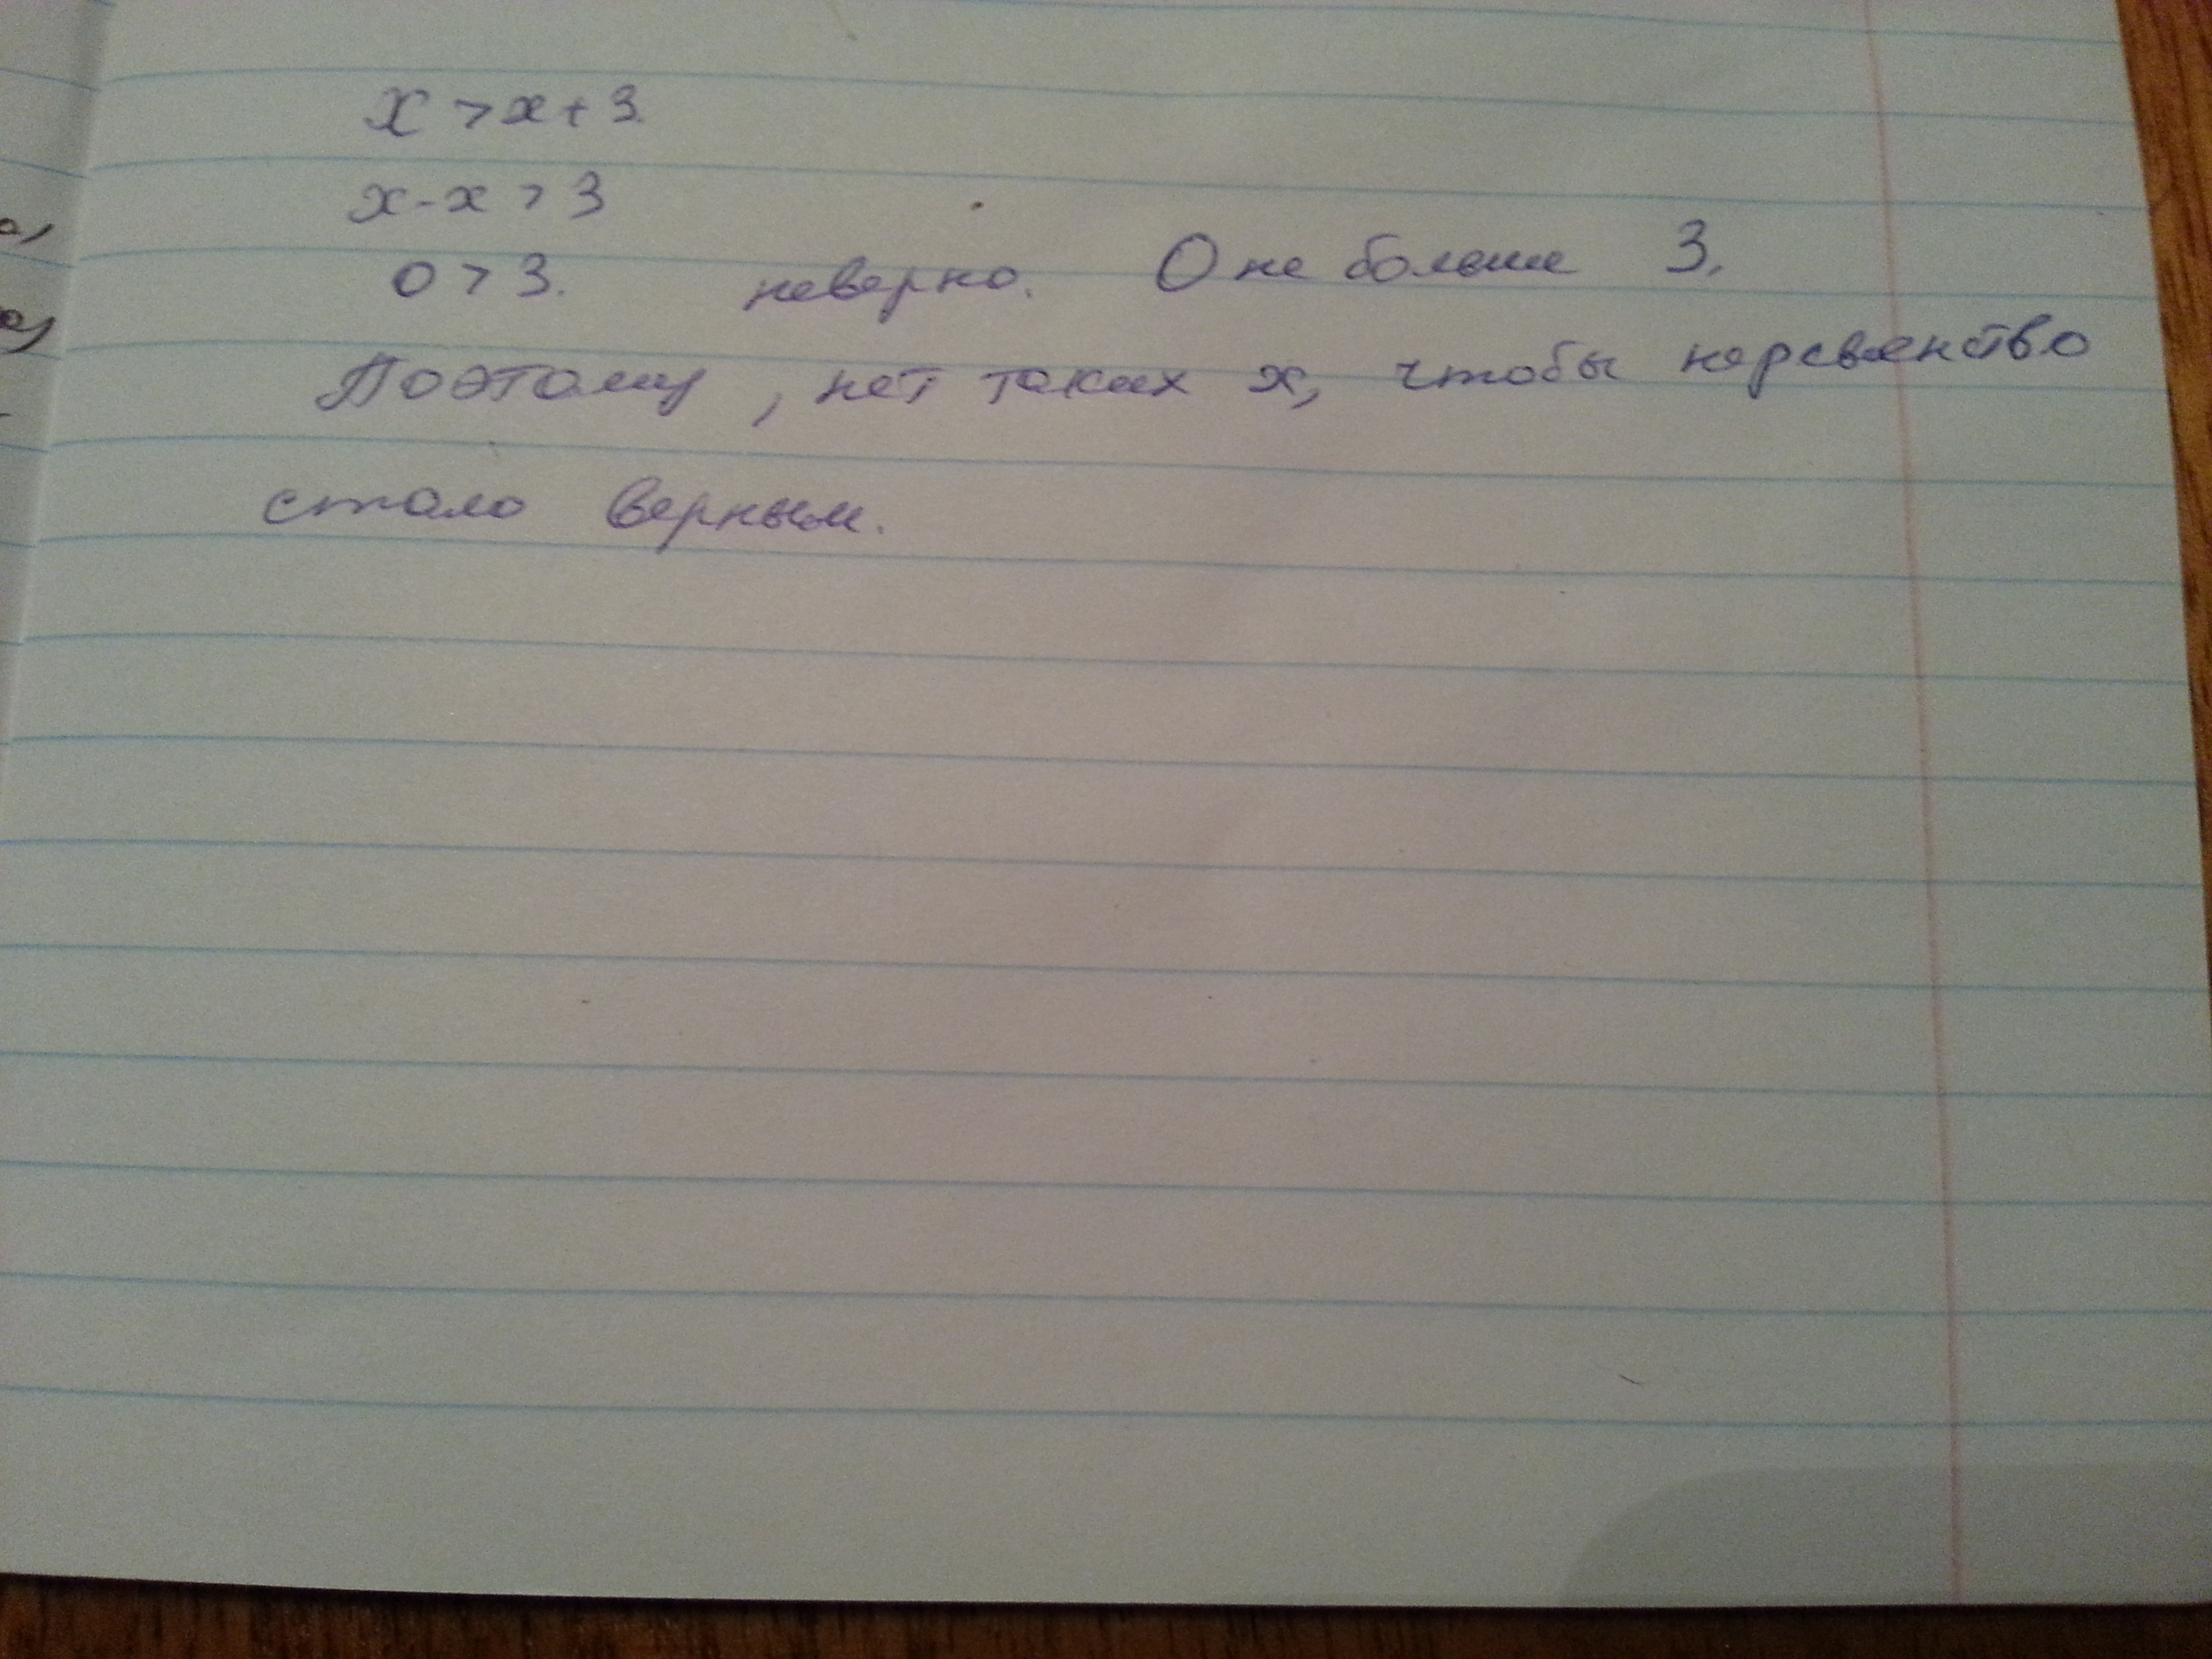 x > x + 3.
x - x > 3
0 > 3. неверно. 0 не больше 3.
Поэтому, нет таких x, чтобы неравенство
стало верным.